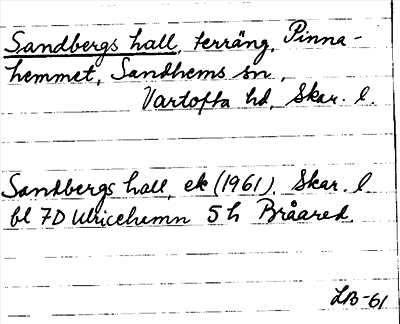 Sandbergs hall, terräng, Pinna-
hemmet, Sandhems sn,
Vartofta hd, Skar. l.
Sandbergs hall, ek (1961). Skar. l.
bl 7D Ulricehamn 5h Bråared.
LB-61